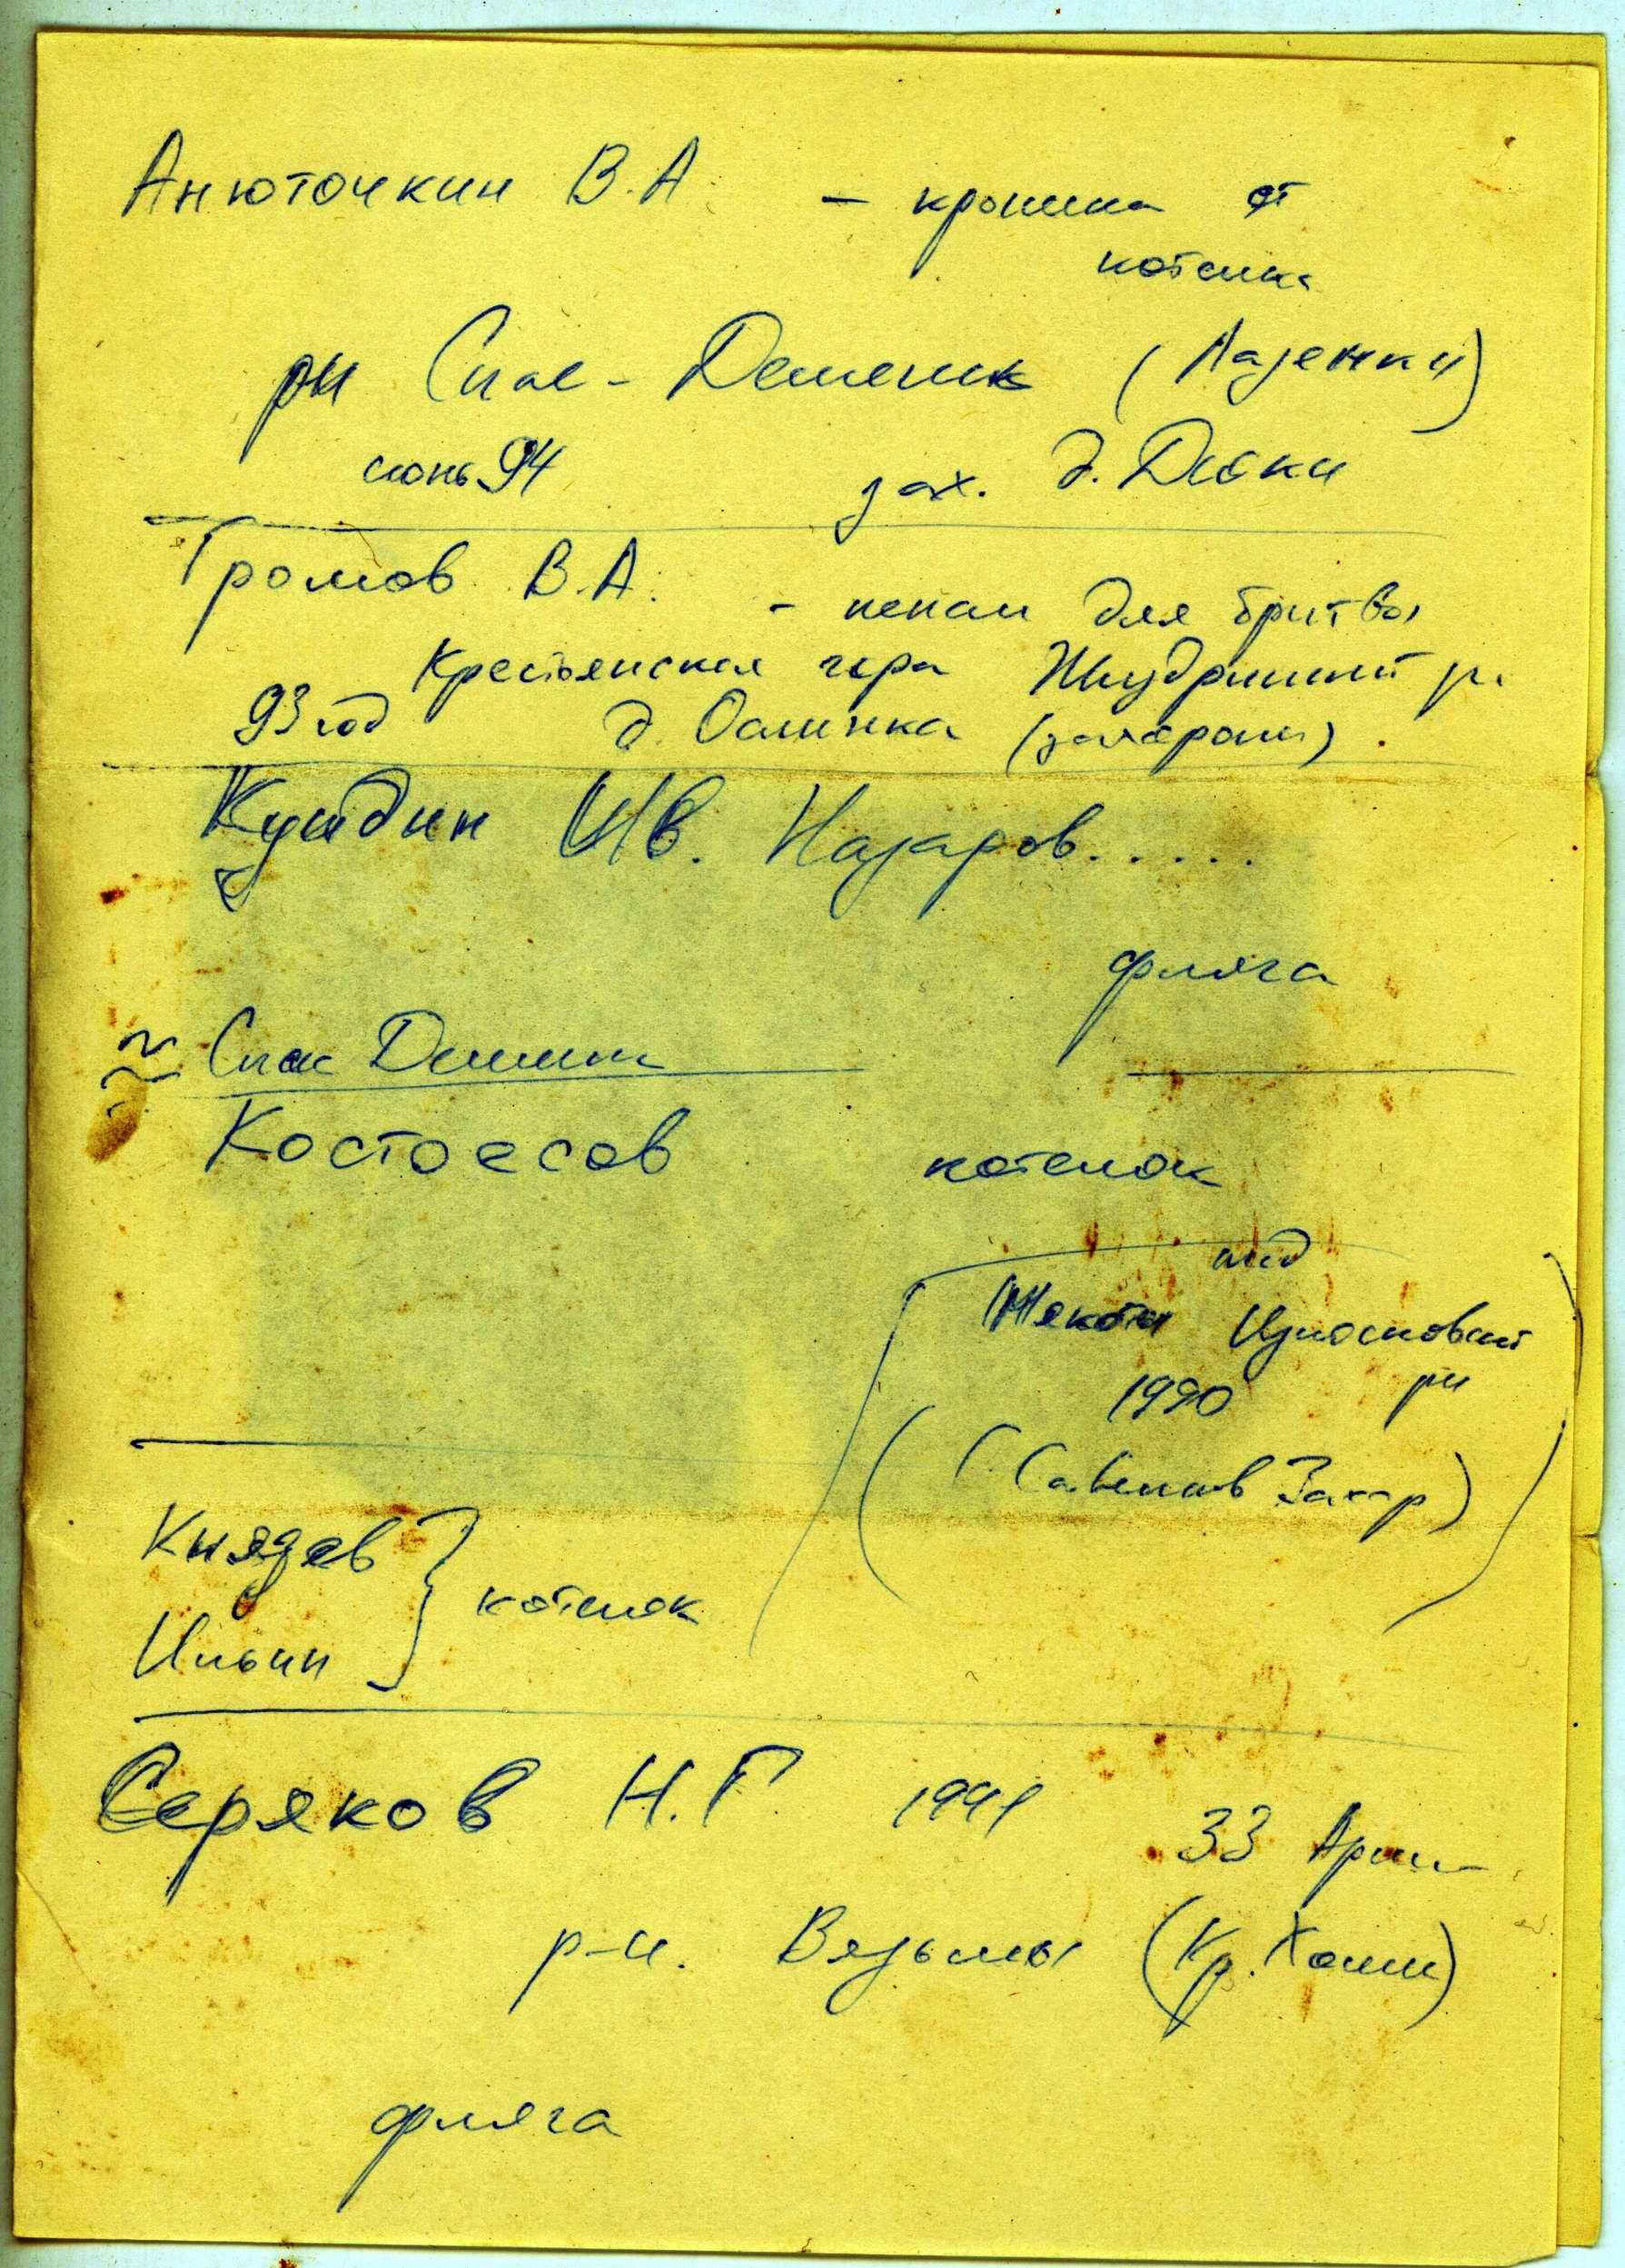 Анюточкин В.А. – крышка от
котелка
рн Спас-Деменск (Лазенки)
июнь 94 зах. д. Дюки
Громов В.А. – пенал для бритвы
Крестьянская гора Жиздринский р.
93 год д. Осинка (захорон)
Куждин Ив. Назаров.....
фляга
≈ Спас Деменск
Костоесов котелок
под
Износковский
1990 рн
(Савенков Захар)
Князев } котелок
Ильин
Серяков Н.Г 1941 33 Арм
р-н. Вязьмы (Кр. Холм)
фляга